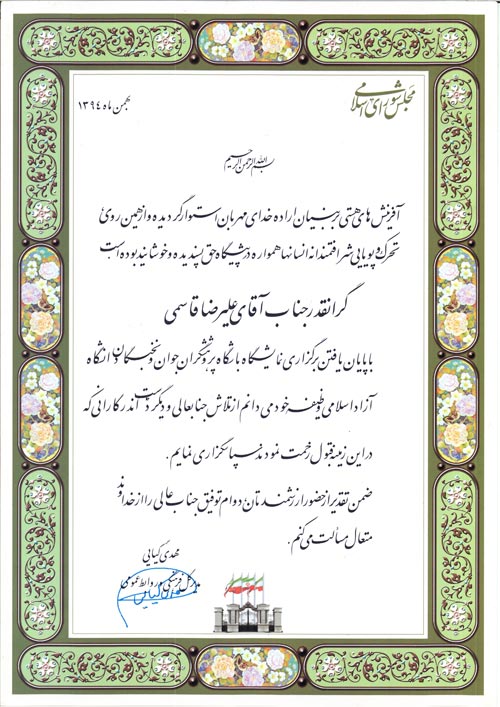 مجلس شورای اسلامی
بهمن ماه ۱۳۹۴
بسم الله الرحمن الرحیم
آفرینش های هستی بر بنیان اراده خدای مهربان استوار گردیده و از همین روی
تحرک و پویایی شرافتمندانه انسانها همواره در پیشگاه حق پسندیده و خوشایند بوده است
گرانقدر جناب آقای علیرضا قاسمی
با پایان یافتن برگزاری نمایشگاه باشگاه پژوهشگران جوان و نخبگان دانشگاه
آزاد اسلامی وظیفه خود می دانم از تلاش جنابعالی و دیگر دست اندرکارانی که
در این زمینه قبول زحمت نمودند سپاسگزاری نمایم.
ضمن تقدیر از حضور ارزشمندتان، دوام توفیق جناب عالی را از خداوند
متعال مسألت می کنم.
مهدی کیایی
مدیر کل فرهنگی و روابط عمومی